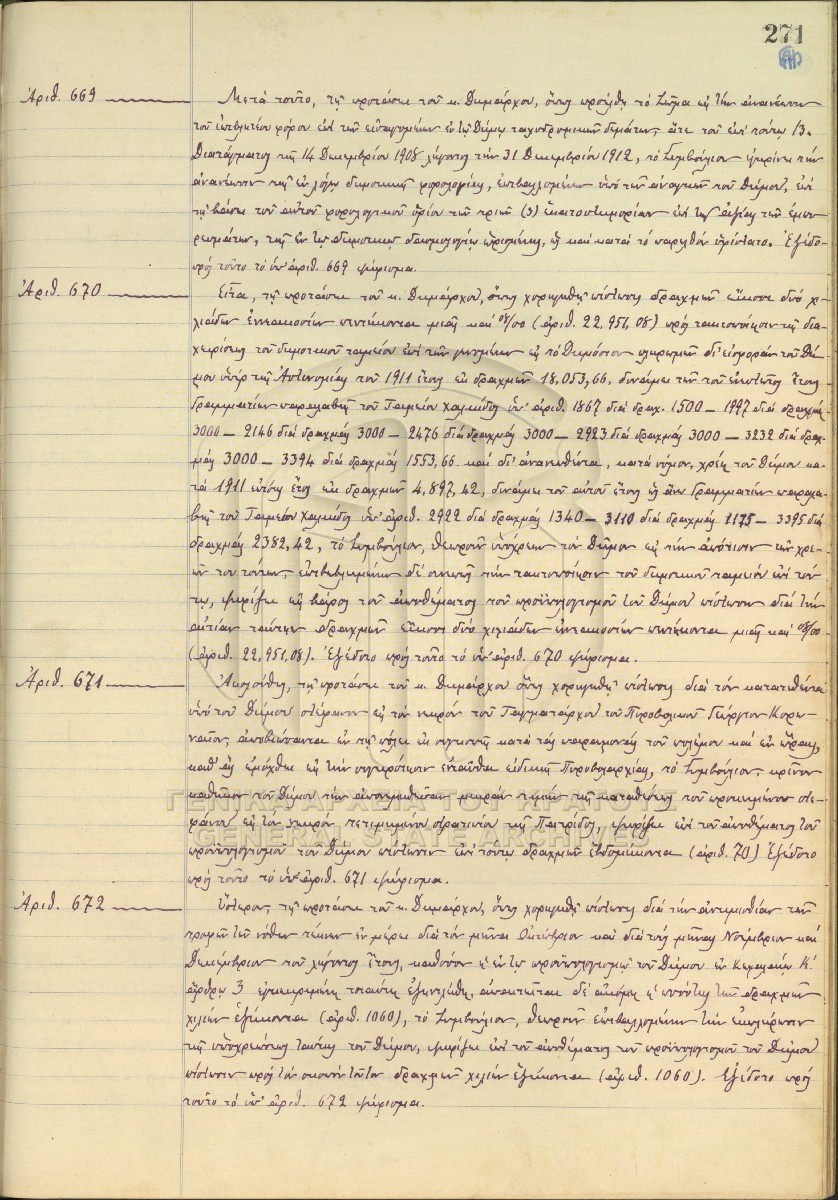 271
Ἀριθ. 669 Μετὰ τοῦτο, τῇ προτάσει τοῦ κ. Δημάρχου, ὅπως προέλθῃ τὸ Σῶμα εἰς τὴν ἀνανέωσιν
τοῦ ἐπιβλητέου φόρου ἐπὶ τῶν εἰσαγομένων ἐν τῷ Δήμῳ ταχυδρομικῶν δεμάτων, ἅτε τοῦ ἐπὶ τούτῳ Β.
Διατάγματος τῆς 14 Δεκεμβρίου 1908 λήγοντος τὴν 31 Δεκεμβρίου 1912, τὸ Συμβούλιον ἐγκρίνει τὴν
ἀνανέωσιν τῆς ἐν λόγῳ δημοτικῆς φορολογίας, ἐπιβαλλομένην ὑπὸ τῶν ἀναγκῶν τοῦ Δήμου, ἐπὶ
τῇ βάσει τοῦ αὐτοῦ φορολογικοῦ ὁρίου τῶν τριῶν (3) ἑκατοστημορίων ἐπὶ τῆς ἀξίας τῶν ἐμπο-
ρευμάτων, τῆς ἐν τῷ δημοτικῷ δασμολογίῳ ὡρισμένης, ὡς καὶ κατὰ τὸ παρελθὸν ὑφίστατο. Ἐξέδο-
πρὸς τοῦτο τὸ ὑπ' ἀριθ. 669 ψήφισμα.
Ἀριθ. 670 Εἶτα, τῇ προτάσει τοῦ κ. Δημάρχου, ὅπως χορηγηθῇ πίστωσις δραχμῶν εἴκοσι δύο χι-
λιάδων ἐννεακοσίων πεντήκοντα μιᾶς καὶ 08/00 (ἀριθ. 22,951,08) πρὸς τακτοποίησιν τῆς δια-
χειρίσεως τοῦ δημοτικοῦ ταμείου ἐπὶ τῶν γενομένων εἰς τὸ Δημόσιον πληρωμῶν δι' εἰσφορὰν τοῦ Δή-
μου ὑπὲρ τῆς Ἀστυνομίας τοῦ 1911 ἔτους ἐκ δραχμῶν 18,053,66. δυνάμει τῶν τοῦ ἐνεστῶτος ἔτους
Γραμματίων παραλαβῆς τοῦ Ταμείου Χαλκίδος ὑπ' ἀριθ. 1867 διὰ δραχ. 1500 — 1997 διὰ δραχμὰς
3000 — 2146 διὰ δραχμὰς 3000 — 2476 διὰ δραχμὰς 3000 — 2923 διὰ δραχμὰς 3000 — 3232 διὰ δραχ-
μὰς 3000 — 3394 διὰ δραχμὰς 1553,66 καὶ δι' ἀνανεωθέντα, κατὰ νόμον, χρέη τοῦ Δήμου κα-
τὰ 1911 ἐπίσης ἔτος ἐκ δραχμῶν 4,897,42, δυνάμει τοῦ αὐτοῦ ἔτους ὡς ἄνω Γραμματίων παραλα-
βῆς τοῦ Ταμείου Χαλκίδος ὑπ' ἀριθ. 2922 διὰ δραχμὰς 1340 — 3110 διὰ δραχμὰς 1175 — 3395 διὰ
δραχμὰς 2382,42, τὸ Συμβούλιον, θεωροῦν ὑπόχρεων τὸν Δῆμον εἰς τὴν ἀπότισιν τῶν χρε-
ῶν του τούτων, ἐπιβεβλημένην δὲ συνεπῶς τὴν τακτοποίησιν τοῦ δημοτικοῦ ταμείου ἐπὶ τού-
τῳ, ψηφίζει εἰς βάρος τοῦ ἀποθέματος τοῦ προϋπολογισμοῦ τοῦ Δήμου πίστωσιν διὰ τὴν
αἰτίαν ταύτην δραχμῶν εἴκοσι δύο χιλιάδων ἐννεακοσίων πεντήκοντα μιᾶς καὶ 08/00
(ἀριθ. 22,951,08). Ἐξέδοτο πρὸς τοῦτο τὸ ὑπ' ἀριθ. 670 ψήφισμα.
Ἀριθ. 671 Ἀκολούθως, τῇ προτάσει τοῦ κ. Δημάρχου ὅπως χορηγηθῇ πίστωσις διὰ τὸν κατατεθέντα
ὑπὸ τοῦ Δήμου στέφανον εἰς τὸν νεκρὸν τοῦ Ταγματάρχου τοῦ Πυροβολικοῦ Γεωργίου
ἀποβιώσαντα ἐν τῇ πόλει ἐκ συγκοπῆς κατὰ τὰς παραμονὰς τοῦ πολέμου καὶ ἐν ὥραις,
καθ' ἃς ἐμόχθει εἰς τὴν συγκρότησιν ἐνταῦθα εἰδικῆς Πυροβολαρχίας, τὸ Συμβούλιον, κρῖνον
καθῆκον τοῦ Δήμου τὴν ἀπονεμηθεῖσαν μικρὰν τιμὴν τῆς καταθέσεως τοῦ προκειμένου στε-
φάνου εἰς τὸν νεκρὸν τετιμημένου στρατιώτου τῆς Πατρίδος, ψηφίζει ἐπὶ τοῦ ἀποθέματος τοῦ
προϋπολογισμοῦ τοῦ Δήμου πίστωσιν ἐπὶ τούτῳ δραχμῶν ἑβδομήκοντα (ἀριθ. 70) Ἐξέδοτο
πρὸς τοῦτο τὸ ὑπ' ἀριθ. 671 ψήφισμα.
Ἀριθ. 672 Ὕστερον, τῇ προτάσει τοῦ κ. Δημάρχου, ὅπως χορηγηθῇ πίστωσις διὰ τὴν ἀντιμισθίαν τῶν
τροφῶν τῶν νόθων τέκνων ἐν μέρει διὰ τὸν μῆνα Ὀκτώβριον καὶ διὰ τοὺς μῆνας Νοέμβριον καὶ
Δεκέμβριον τοῦ λήγοντος ἔτους, καθόσον ἡ ἐν τῷ προϋπολογισμῷ τοῦ Δήμου ἐν Κεφαλαίῳ
ἄρθρῳ 3 ἐγκεκριμένη τοιαύτη ἐξηντλήθη, ἀπαιτεῖται δὲ ἀκόμη ἡ τῶν δραχμῶν
χιλίων ἑξήκοντα (ἀριθ. 1060), τὸ Συμβούλιον, θεωροῦν ἐπιβαλλομένην τὴν ἐκπλήρωσιν
τῆς ὑποχρεώσεως ταύτης τοῦ Δήμου, ψηφίζει ἐπὶ τοῦ ἀποθέματος τοῦ προϋπολογισμοῦ τοῦ Δήμου
πίστωσιν πρὸς τὸν σκοπὸν τοῦτον δραχμῶν χιλίων ἑξήκοντα (ἀριθ. 1060). Ἐξέδοτο πρὸς
τοῦτο τὸ ὑπ' ἀριθ. 672 ψήφισμα.
ΓΕΝΙΚΑ ΑΡΧΕΙΑ ΤΟΥ ΚΡΑΤΟΥΣ
GENERAL STATE ARCHIVES